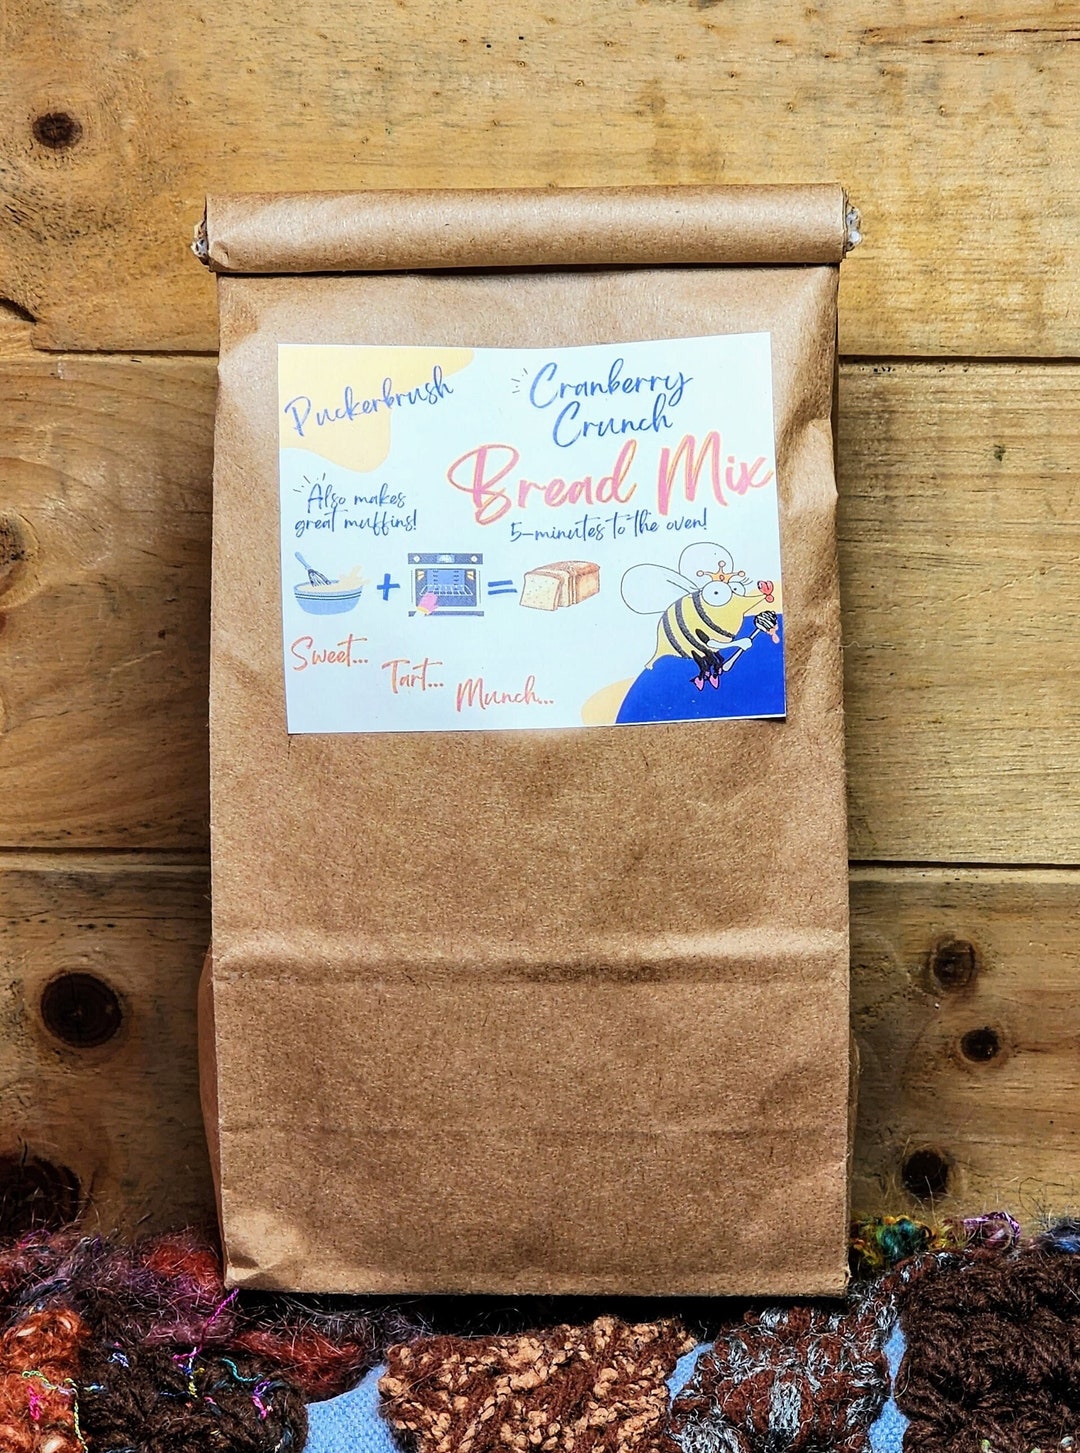 Puckerbrush
Cranberry
Crunch
Bread Mix
5-minutes to the oven!
Also makes
great muffins!
+ =
Sweet...
Tart...
Munch...